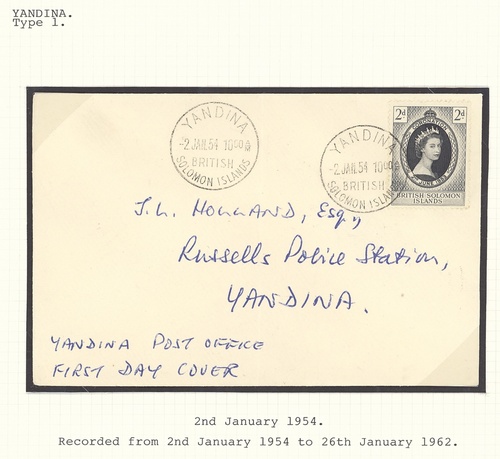 YANDINA.
Type 1.
YANDINA
-2 JAN. 54 1000
BRITISH
SOLOMON ISLANDS
YANDINA
-2 JAN. 54 1000
BRITISH
SOLOMON ISLANDS
2d 2d
CORONATION
BRITISH SOLOMON
ISLANDS
J.L. HOLLAND, Esq.,
Russells Police Station,
YANDINA.
YANDINA POST OFFICE
FIRST DAY COVER
2nd January 1954.
Recorded from 2nd January 1954 to 26th January 1962.